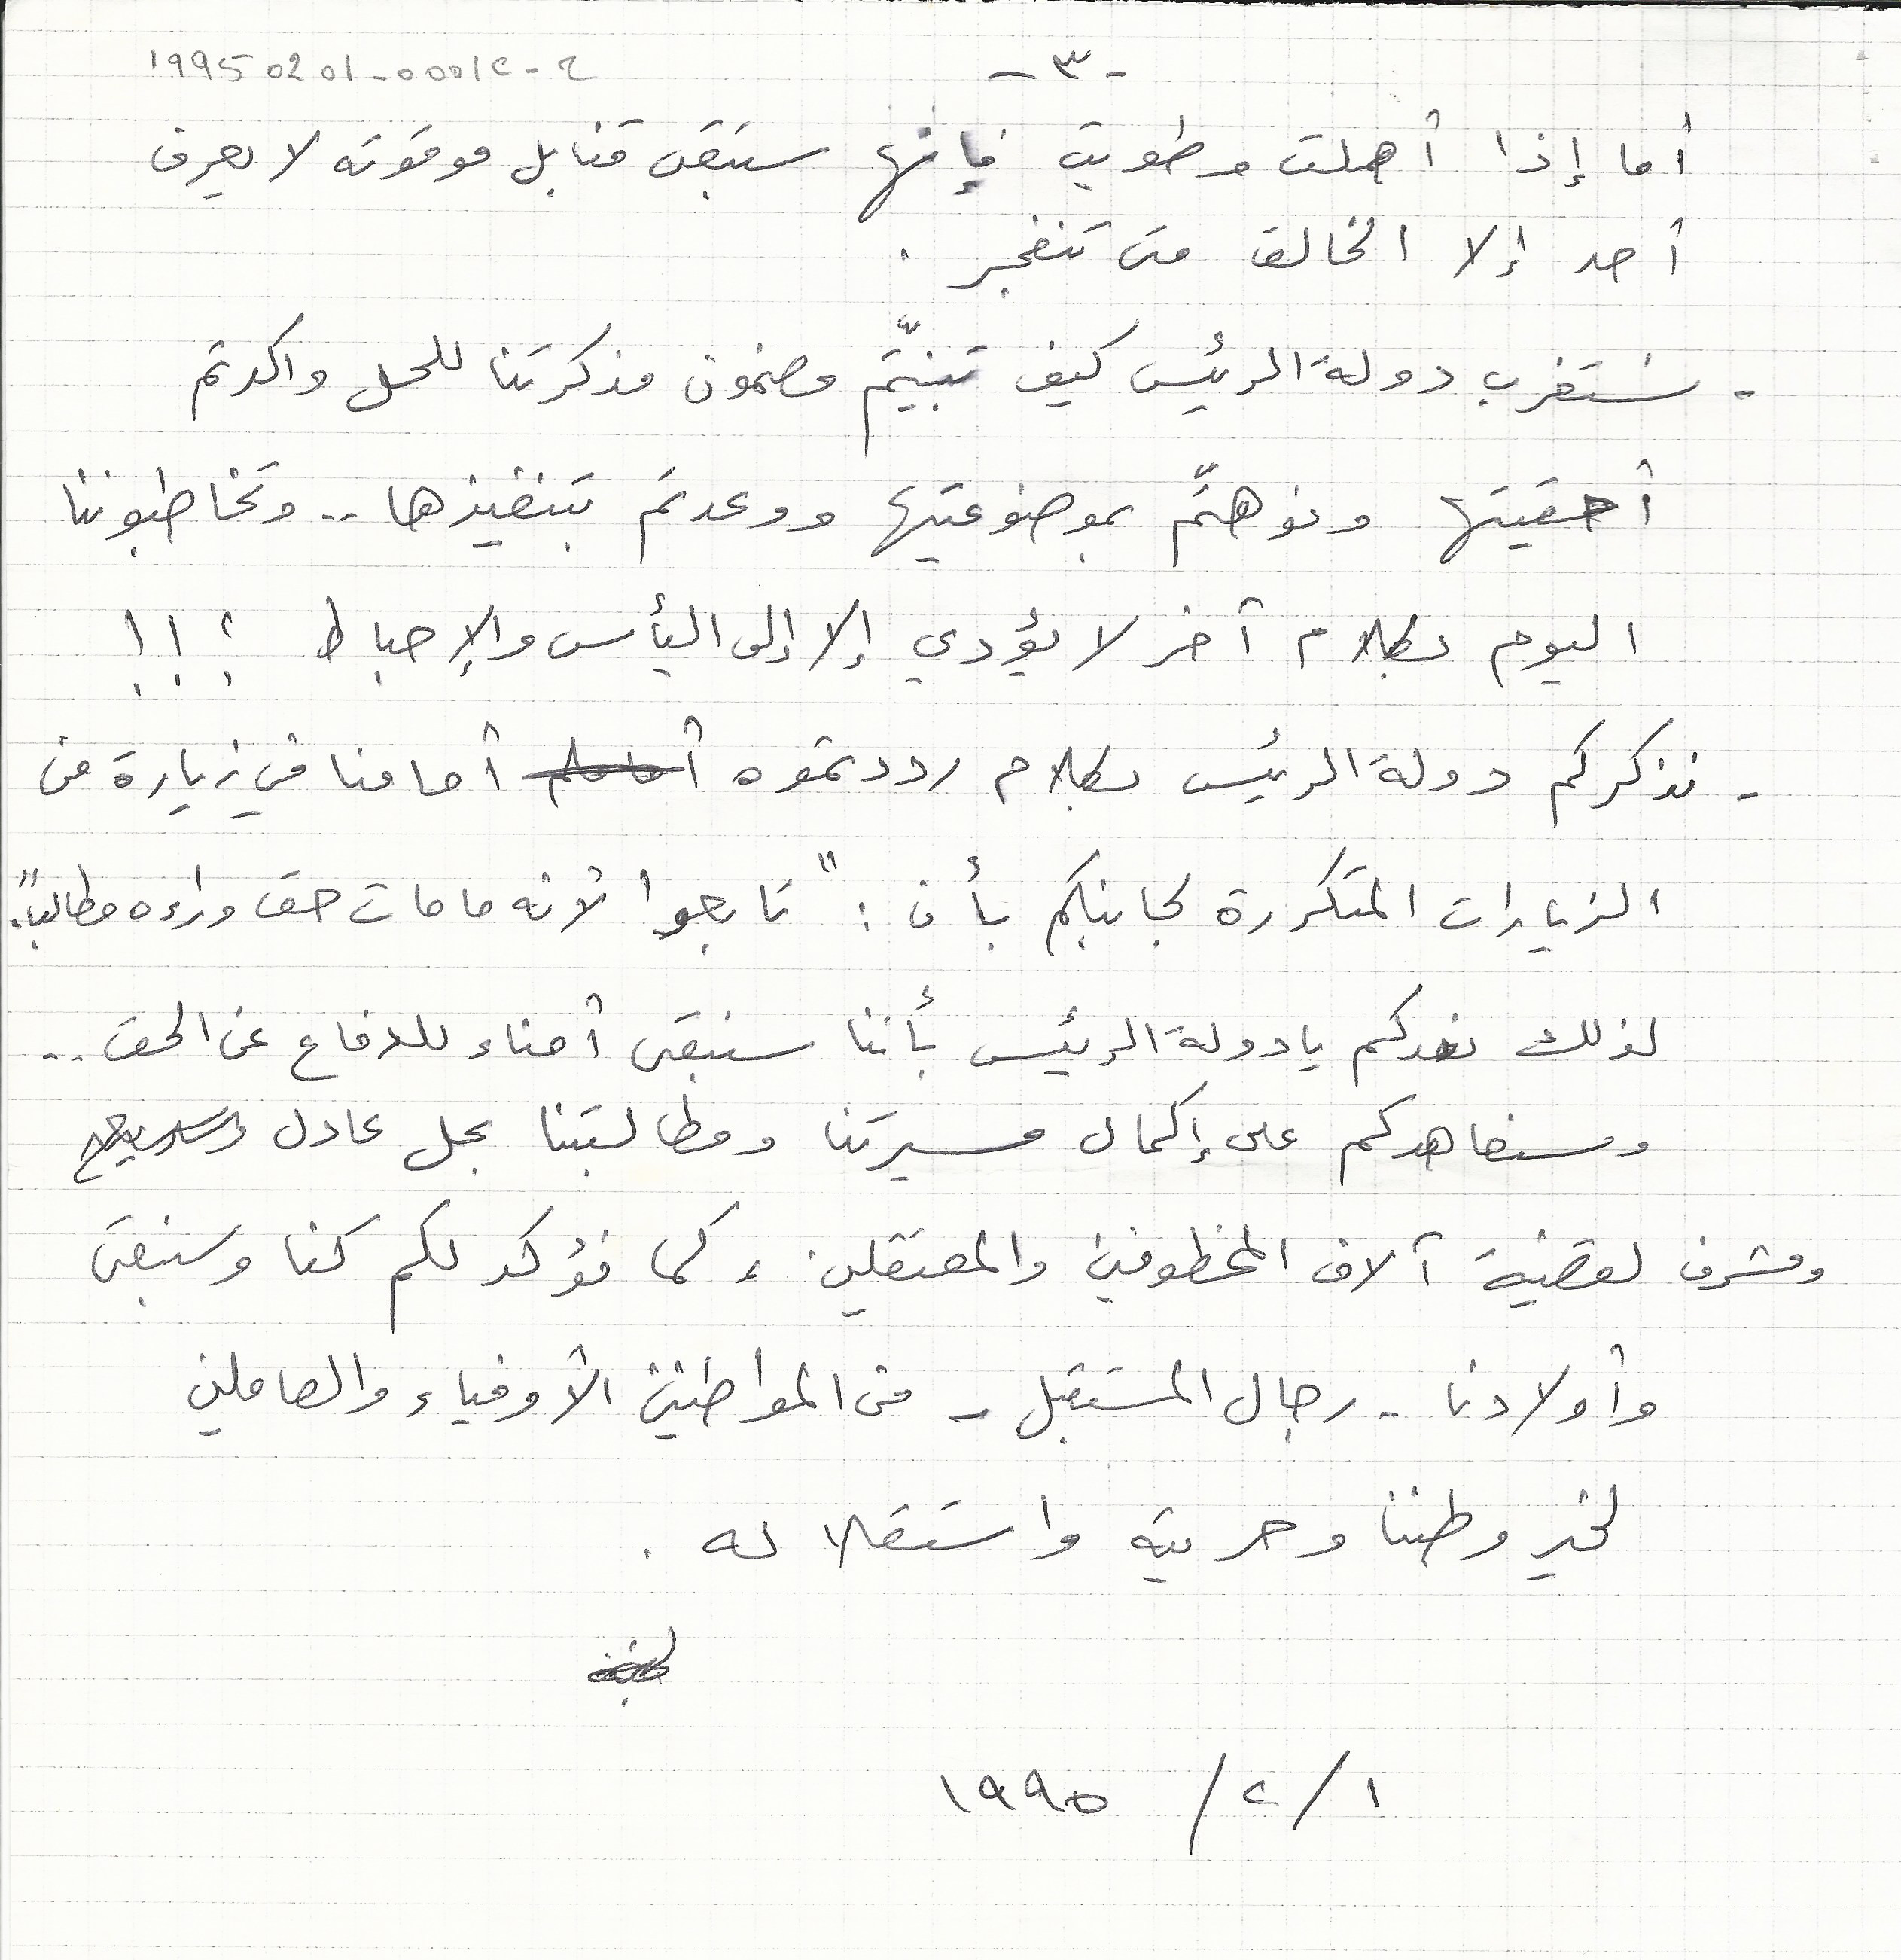 -٣-
19950201-0001C-2
أما إذا أهملت وطويت فإنها ستبقى قنابل موقوته لا يعرف
أحد إلا الخالق متى تنفجر .
- نستغرب دولة الرئيس كيف تبنيّتم مضمون مذكرتنا للحل واكدتم
أحقيتها ونوهتّم بموضوعيتها ووعدتم بتنفيذها .. وتخاطبوننا
اليوم بكلام آخر لا يؤدي إلا إلى اليأس والإحباط ؟!!
- نذكركم دولة الرئيس بكلام رددتموه أمامنا في زيارة من
الزيارات المتكررة لجانبكم بأن : "تابعوا لأنه ما مات حق وراءه مطالباً".
لذلك نعدكم يا دولة الرئيس بأننا سنبقى أمناء للدفاع عن الحق ..
وسنعاهدكم على إكمال مسيرتنا ومطالبتنا بحل عادل
ومشرف لقضية آلاف المخطوفين والمعتقلين ، كما نؤكد لكم كنا وسنبقى
وأولادنا - رجال المستقبل - من المواطنين الأوفياء والعاملين
لخير وطننا وحريته واستقلاله .
١ / ٢ / ١٩٩٥